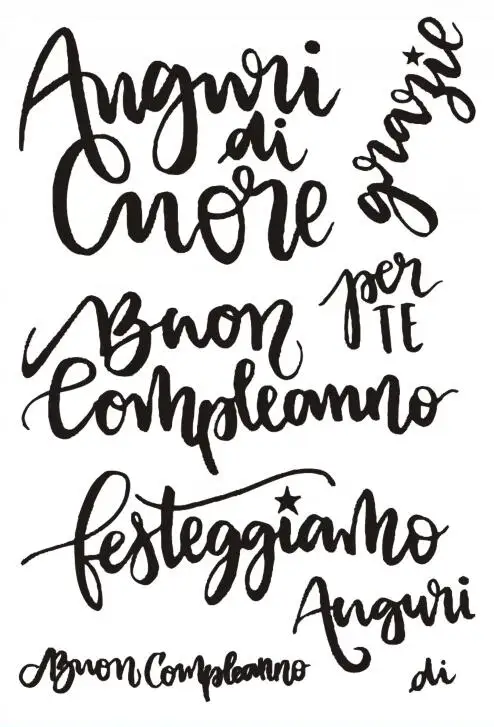 Auguri
di
Cuore
grazie
per
TE
Buon
Compleanno
festeggiamo
Auguri
Buon Compleanno
di